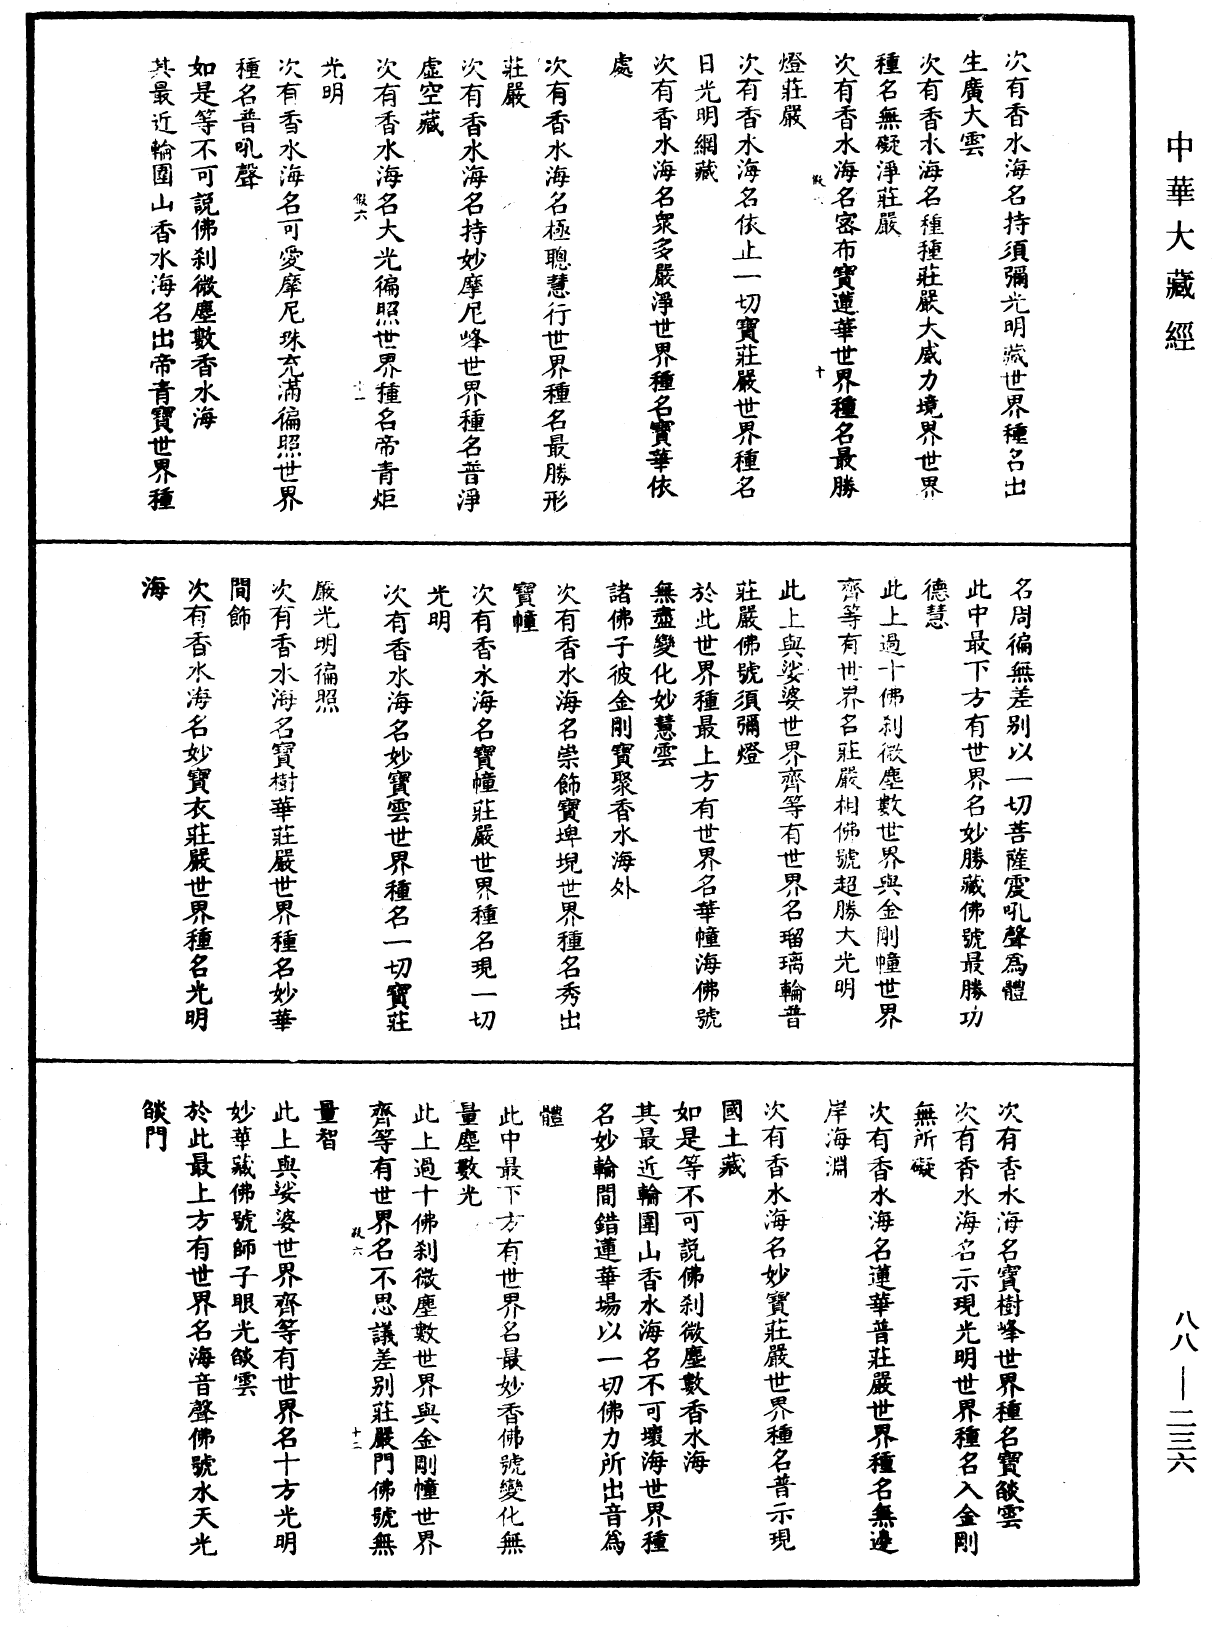 中華大藏經
次有香水海名持須彌光明藏世界種名出
生廣大雲
次有香水海名種種莊嚴大威力境界世界
種名無礙淨莊嚴
次有香水海名密布寶蓮華世界種名最勝
燈莊嚴
次有香水海名依止一切寶莊嚴世界種名
日光明網藏
次有香水海名衆多嚴淨世界種名寶華依
處
次有香水海名極聰慧行世界種名最勝形
莊嚴
次有香水海名持妙摩尼峰世界種名普淨
虛空藏
次有香水海名大光徧照世界種名帝青炬
光明
次有香水海名可愛摩尼珠充滿徧照世界
種名普吼聲
如是等不可說佛刹微塵數香水海
其最近輪圍山香水海名出帝青寶世界種
名周徧無差别以一切菩薩震吼聲爲體
此中最下方有世界名妙勝藏佛號最勝功
德慧
此上過十佛刹微塵數世界與金剛幢世界
齊等有世界名莊嚴相佛號超勝大光明
此上與娑婆世界齊等有世界名瑠璃輪普
莊嚴佛號須彌燈
於此世界種最上方有世界名華幢海佛號
無盡變化妙慧雲
諸佛子彼金剛寶聚香水海外
次有香水海名崇飾寶埤堄世界種名秀出
寶幢
次有香水海名寶幢莊嚴世界種名現一切
光明
次有香水海名妙寶雲世界種名一切寶莊
嚴光明徧照
次有香水海名寶樹華莊嚴世界種名妙華
間飾
次有香水海名妙寶衣莊嚴世界種名光明
海
次有香水海名寶樹峰世界種名寶燄雲
次有香水海名示現光明世界種名入金剛
無所礙
次有香水海名蓮華普莊嚴世界種名無邊
岸海淵
次有香水海名妙寶莊嚴世界種名普示現
國土藏
如是等不可說佛刹微塵數香水海
其最近輪圍山香水海名不可壞海世界種
名妙輪間錯蓮華場以一切佛力所出音爲
體
此中最下方有世界名最妙香佛號變化無
量塵數光
此上過十佛刹微塵數世界與金剛幢世界
齊等有世界名不思議差别莊嚴門佛號無
量智
此上與娑婆世界齊等有世界名十方光明
妙華藏佛號師子眼光燄雲
於此最上方有世界名海音聲佛號水天光
燄門
假六
十一
十
十二
八八——二三六